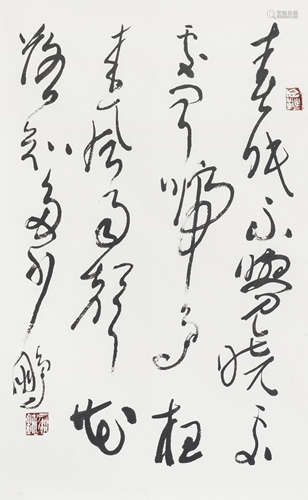 春眠不覺曉處
處聞啼鳥夜
来風雨聲花
落知多少 沈鹏